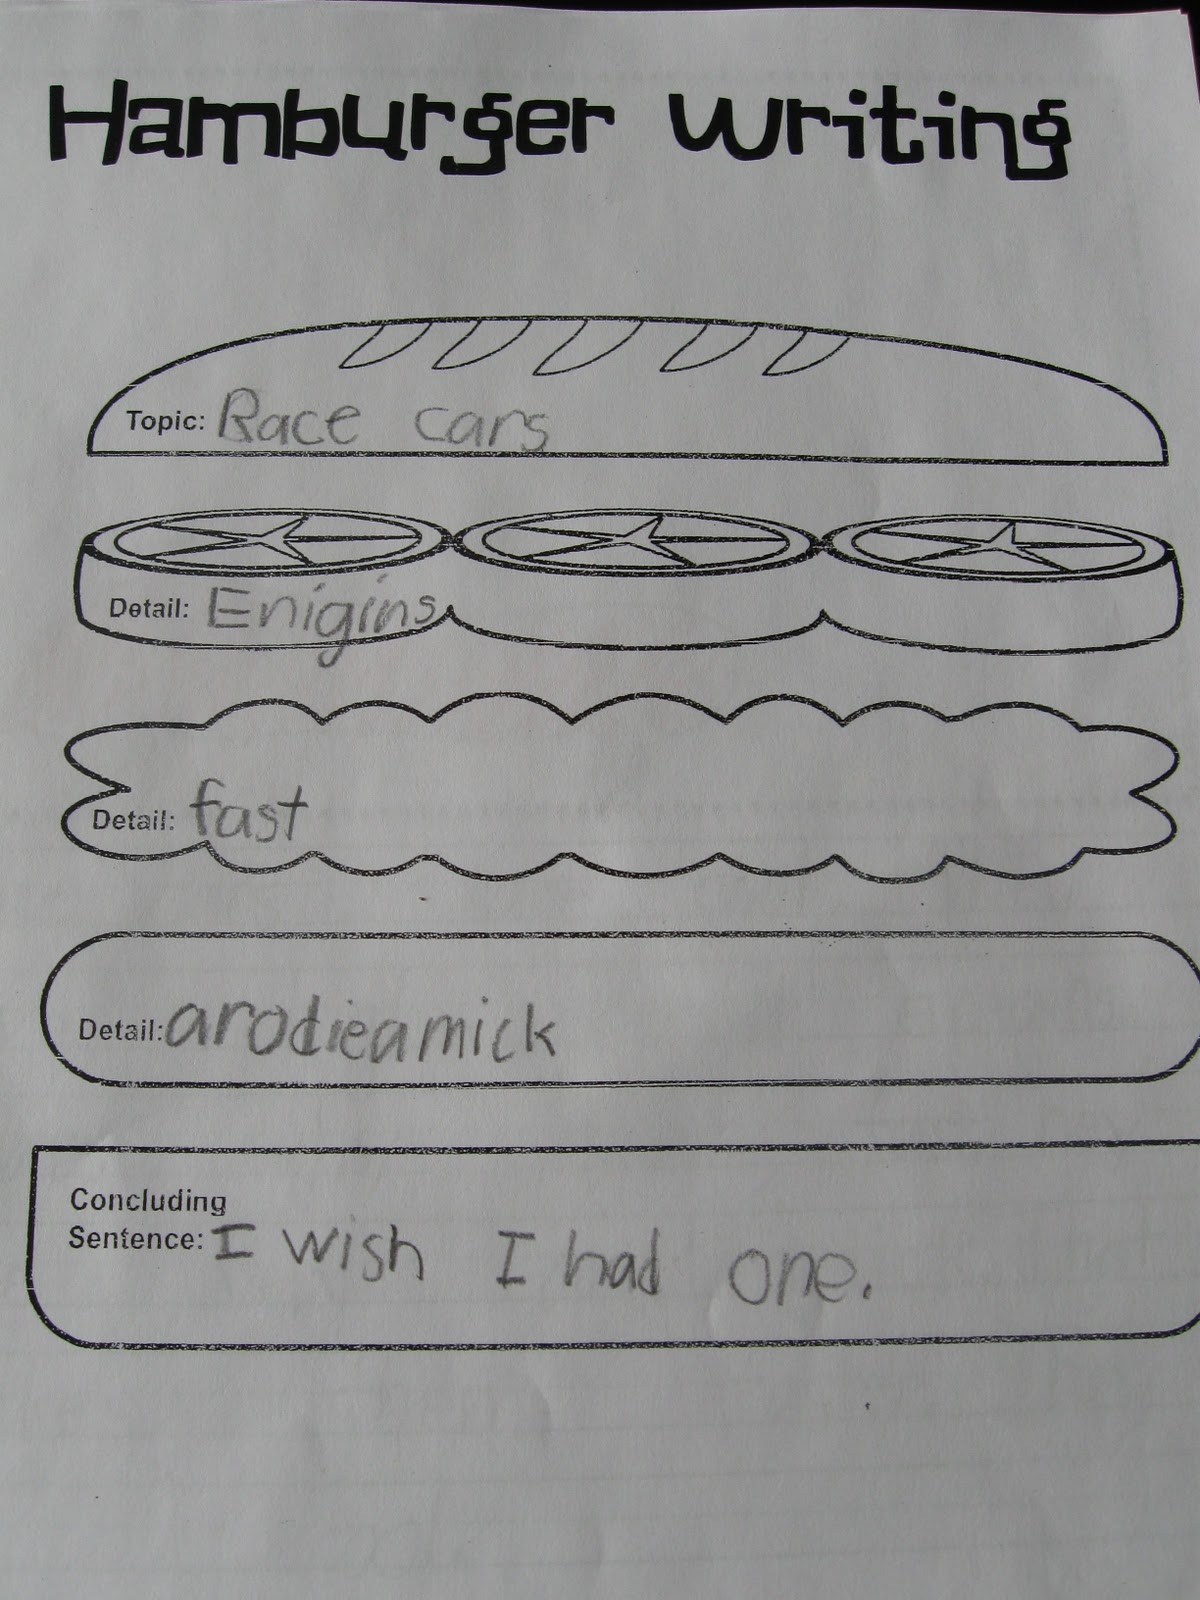 Hamburger Writing
Topic: Race cars
Detail: Enigins
Detail: fast
Detail: arodieamick
Concluding
Sentence: I wish I had one.